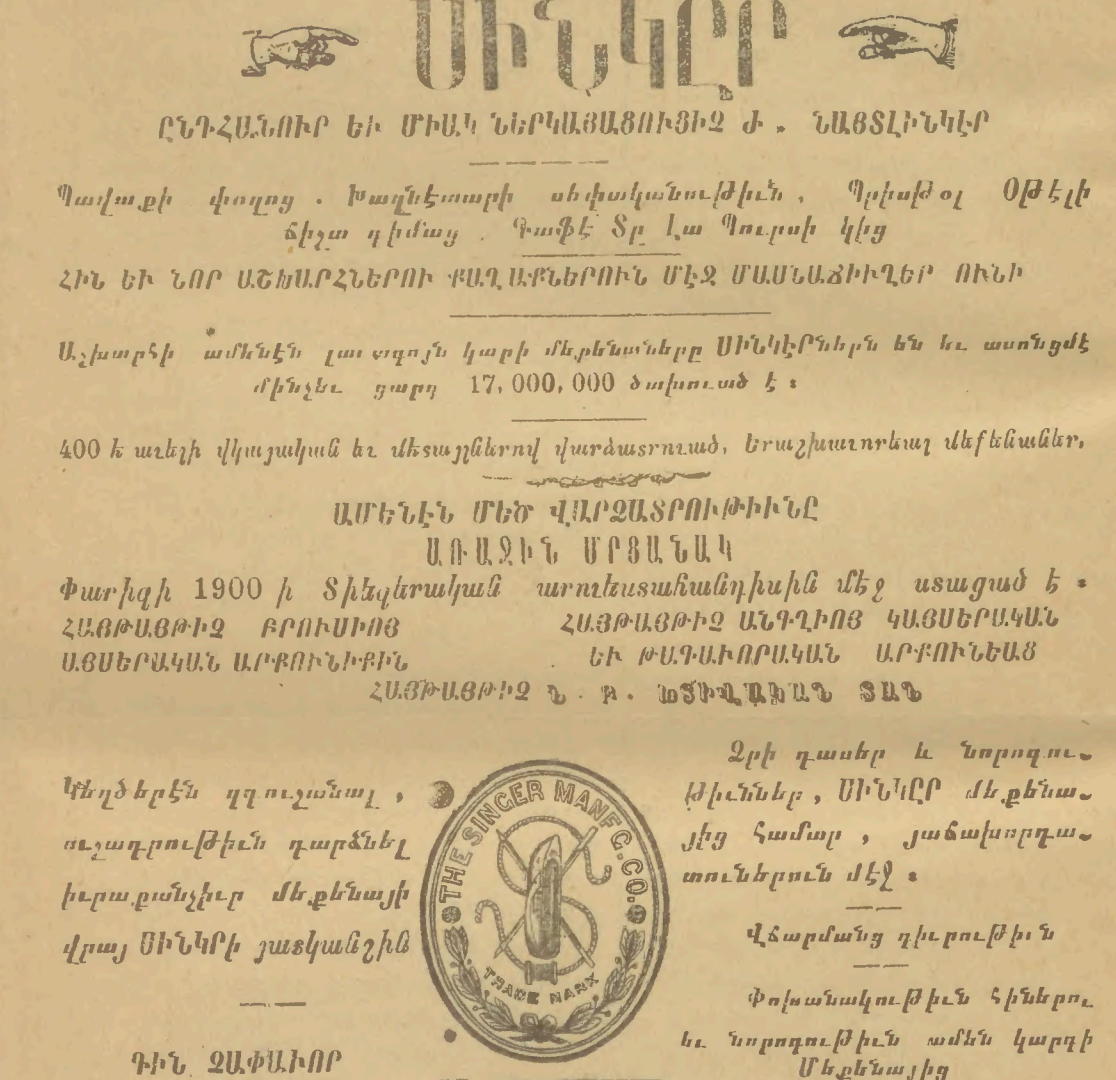 ՍԻՆԿԸՐ
ԸՆԴՀԱՆՈՒՐ ԵՒ ՄԻԱԿ ՆԵՐԿԱՅԱՑՈՒՑԻՉ Ժ. ՆԱՅՏԼԻՆԿԷՐ
փողոց . Խազնէտարի սեփականութիւն , Պրիսթօլ Օթէլի
ճիշտ դիմաց . Գաֆէ Տը Լա Պուրսի կից
ՀԻՆ ԵՒ ՆՈՐ ԱՇԽԱՐՀՆԵՐՈՒ ՔԱՂԱՔՆԵՐՈՒՆ ՄԷՋ ՄԱՍՆԱՃԻՒՂԵՐ ՈՒՆԻ
Աշխարհի ամենէն լաւագոյն կարի մեքենաները ՍԻՆԿԷՐներն են եւ ասոնցմէ
մինչեւ ցարդ 17,000,000 ծախուած է ։
400 է աւելի վկայական եւ մետայլներով վարձատրուած, Երաշխաւորեալ մեքենաներ,
ԱՄԵՆԷՆ ՄԵԾ ՎԱՐՁԱՏՐՈՒԹԻՒՆԸ
ԱՌԱՋԻՆ ՄՐՑԱՆԱԿ
Փարիզի 1900 ի Տիեզերական արուեստահանդիսին մէջ ստացած է ։
ՀԱՅԹԱՅԹԻՉ ԲՐՈՒՍԻՈՅ
ԱՅՍԵՐԱԿԱՆ ԱՐՔՈՒՆԻՔԻՆ
ՀԱՅԹԱՅԹԻՉ ԱՆԳՂԻՈՅ ԿԱՅՍԵՐԱԿԱՆ
ԵՒ ԹԱԳԱՒՈՐԱԿԱՆ ԱՐՔՈՒՆԵԱՑ
ՀԱՅԹԱՅԹԻՉ Ն . Բ . ՏԱՆ
Կեղծերէն զգուշանալ ,
ուշադրութիւն դարձնել
իւրաքանչիւր մեքենայի
վրայ ՍԻՆԿՐի յատկանշին
ԳԻՆ ՉԱՓԱՒՈՐ
THE SINGER MANFG. CO.
TRADE MARK
Ձրի դասեր և նորոգու-
թիւններ , ՍԻՆԿԸՐ մեքենա-
յից համար , յաճախորդա-
տուներուն մէջ ։
Վճարմանց դիւրութիւն
Փոխանակութիւն հիներու
եւ նորոգութիւն ամեն կարգի
Մեքենայից